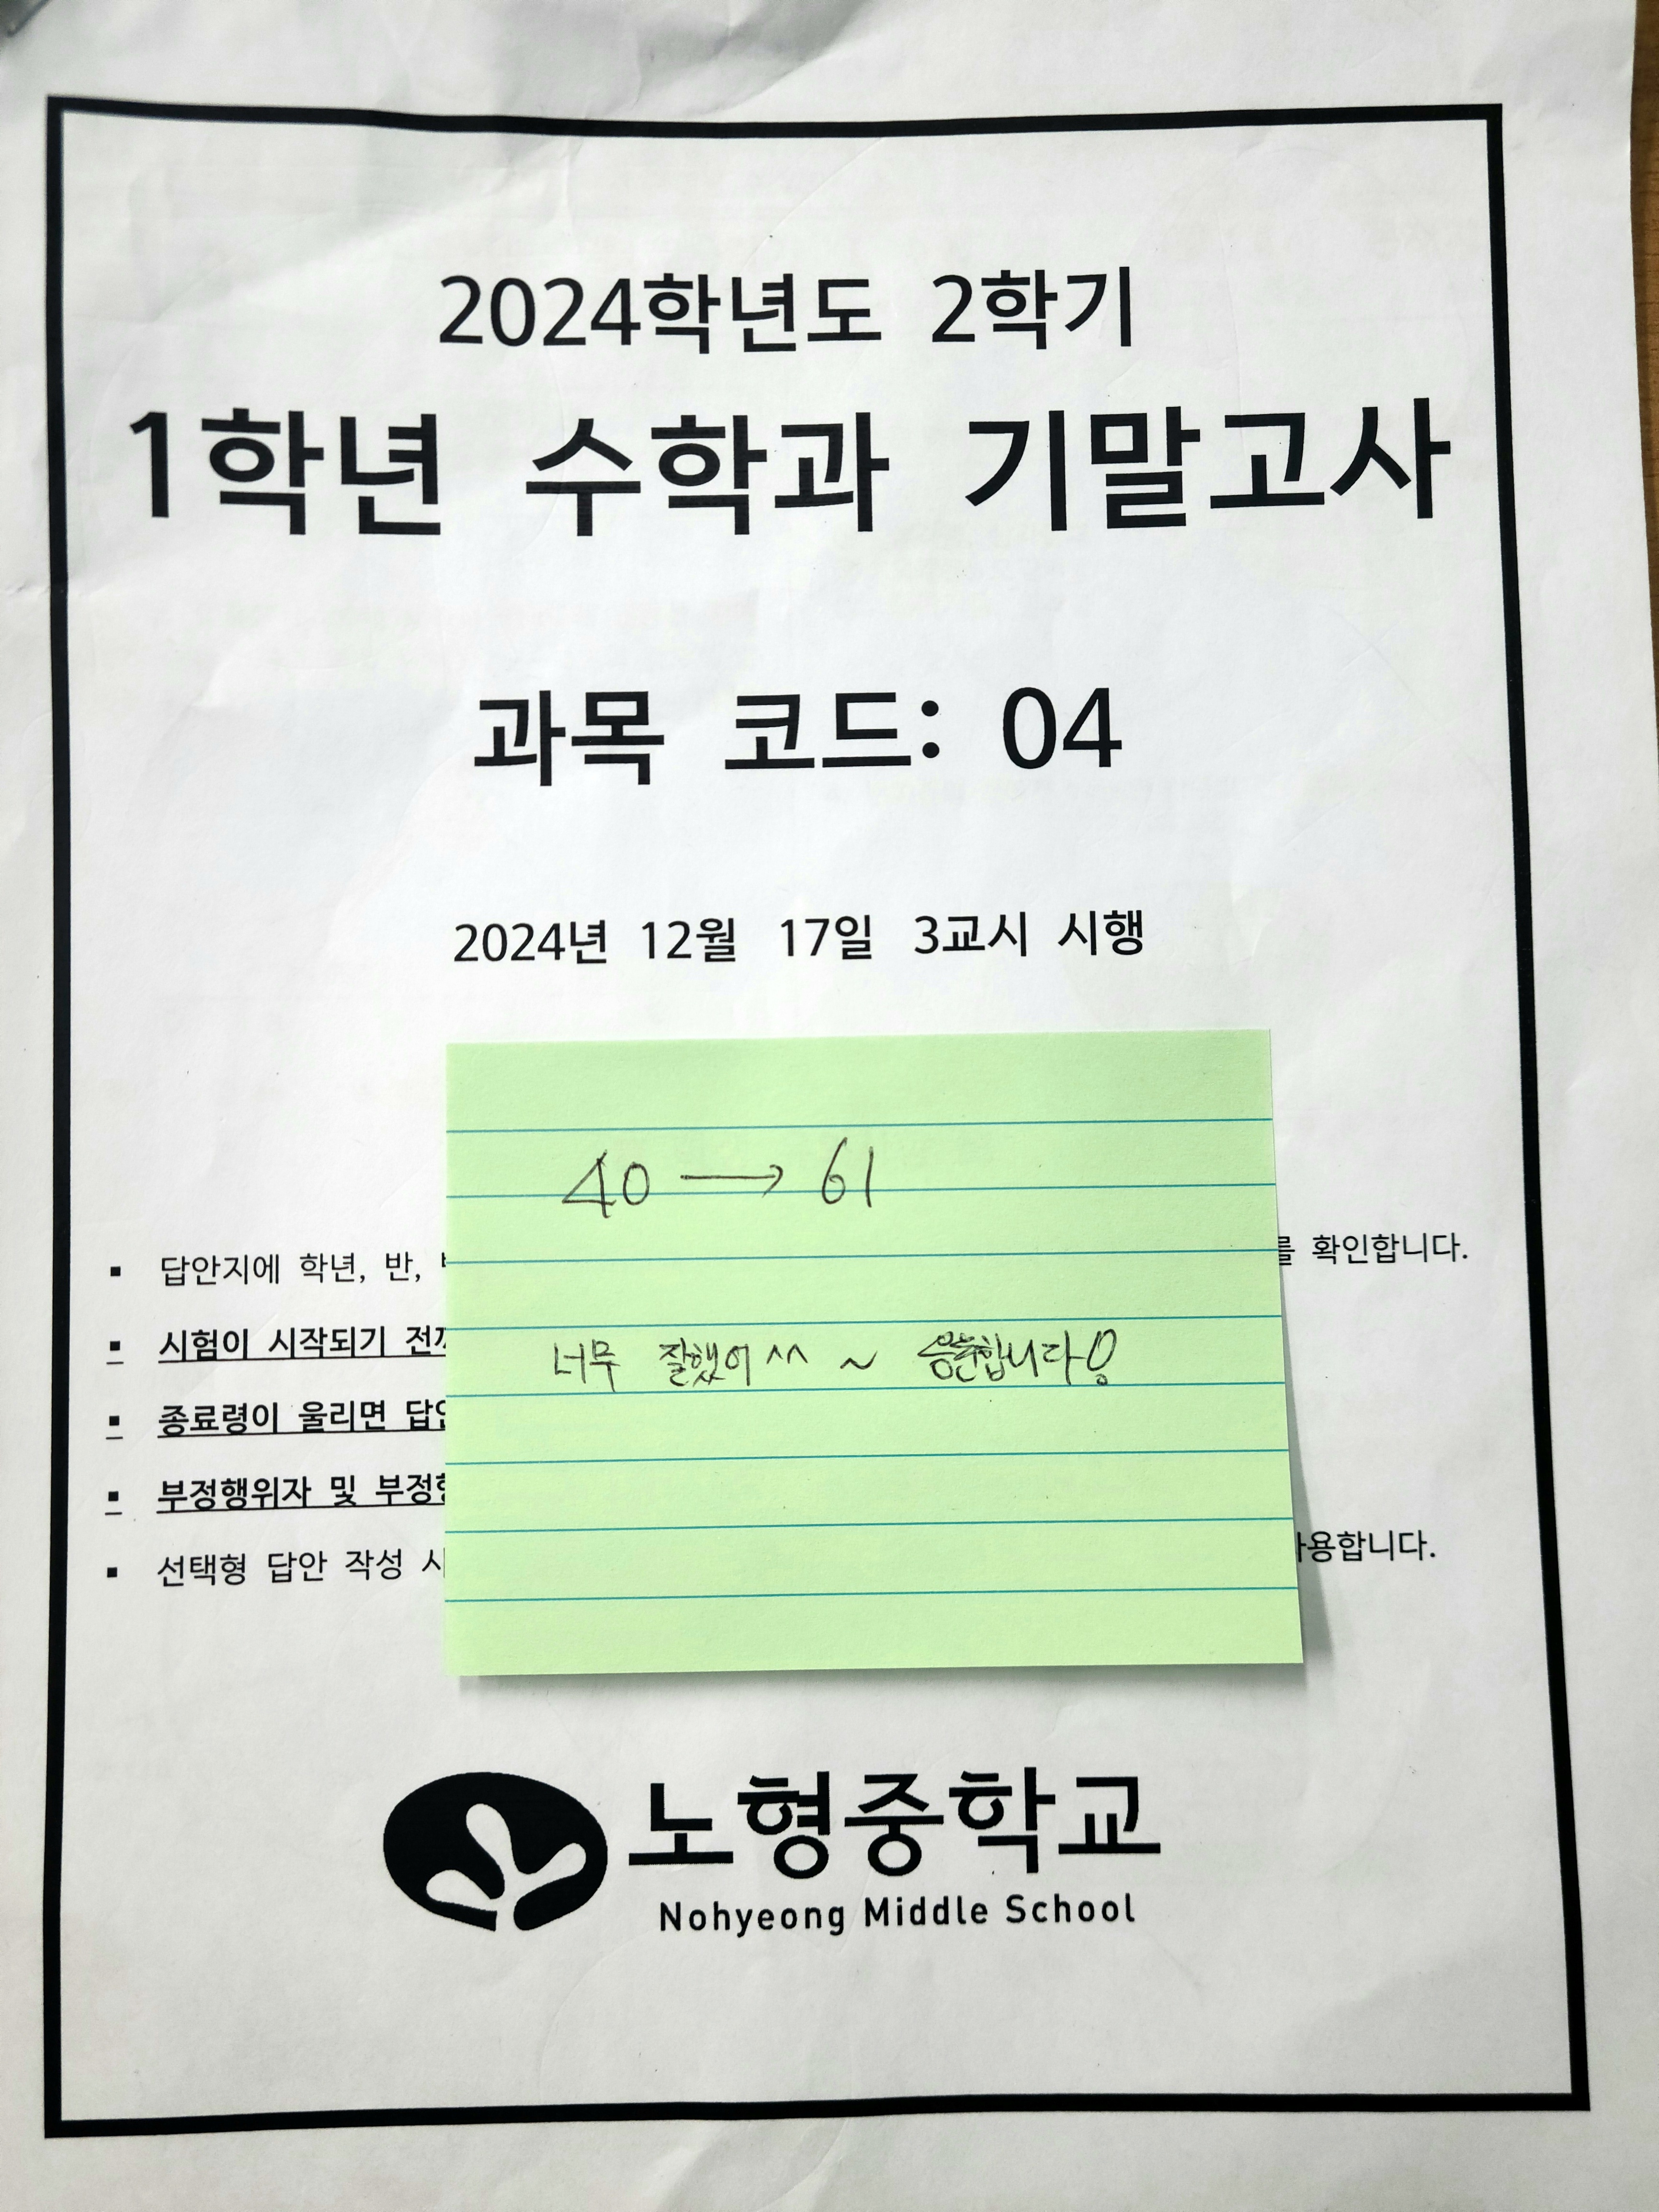 2024학년도 2학기
1학년 수학과 기말고사
과목 코드: 04
2024년 12월 17일 3교시 시행
40 → 61
▪ 답안지에 학년, 반, 를 확인합니다.
너무 잘했어 ^^ ~
▪ 시험이 시작되기
▪ 종료령이 울리면
▪ 부정행위자 및
▪ 선택형 답안 작성 용합니다.
노형중학교
Nohyeong Middle School